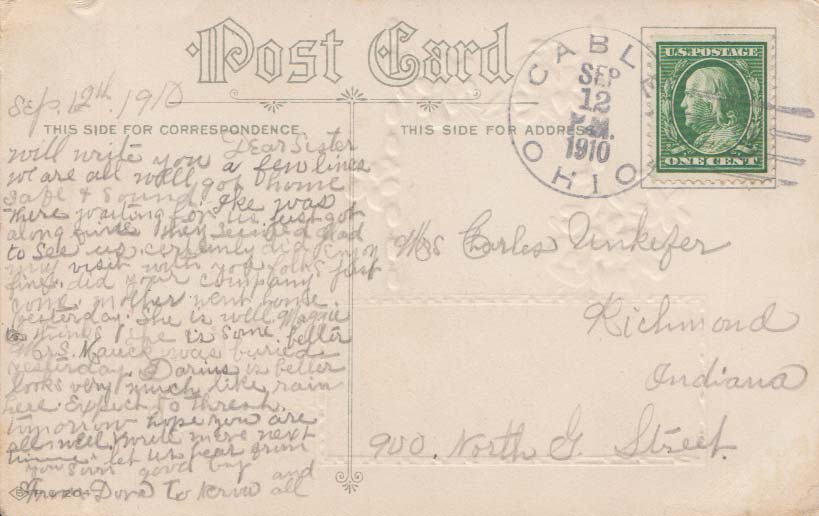 Post Card
THIS SIDE FOR CORRESPONDENCE
THIS SIDE FOR ADDRESS
CABLE
SEP
12
1910
OHIO
U.S. POSTAGE
ONE CENT
Sep. 12th. 1910
Dear Sister
will write you a few lines
we are all well got home
safe & sound. Ike was
there waiting for us. just got
along fine they seemed glad
to see us certainly did enjoy
my visit with you folks just
fine. did your company
come. mother went home
yesterday. She is well Maggie
thinks she is some better
Mrs. Mauck was buried
yesterday. Darius is better
looks very much like rain
here. Expect to thresh
tomorrow hope you are
all well. write more next
time. let us hear from
you soon good by and
From Dora To all
Mrs Charles Unkefer
Richmond
Indiana
900. North G. Street.